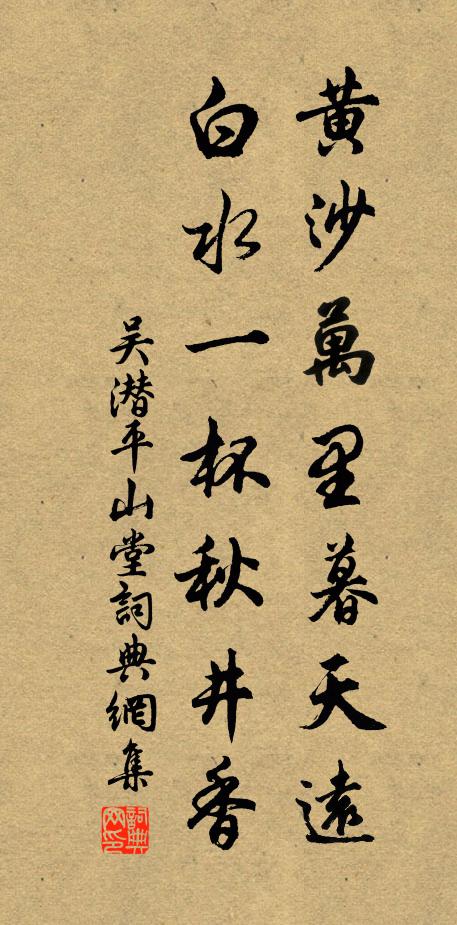 黄沙萬里暮天遠
白水一杯秋井香
吴潜平山堂詞典網集
詞典网印